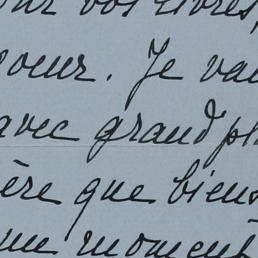 vos livres,
cœur. Je vou
avec grand pl
ère que biens
un moment